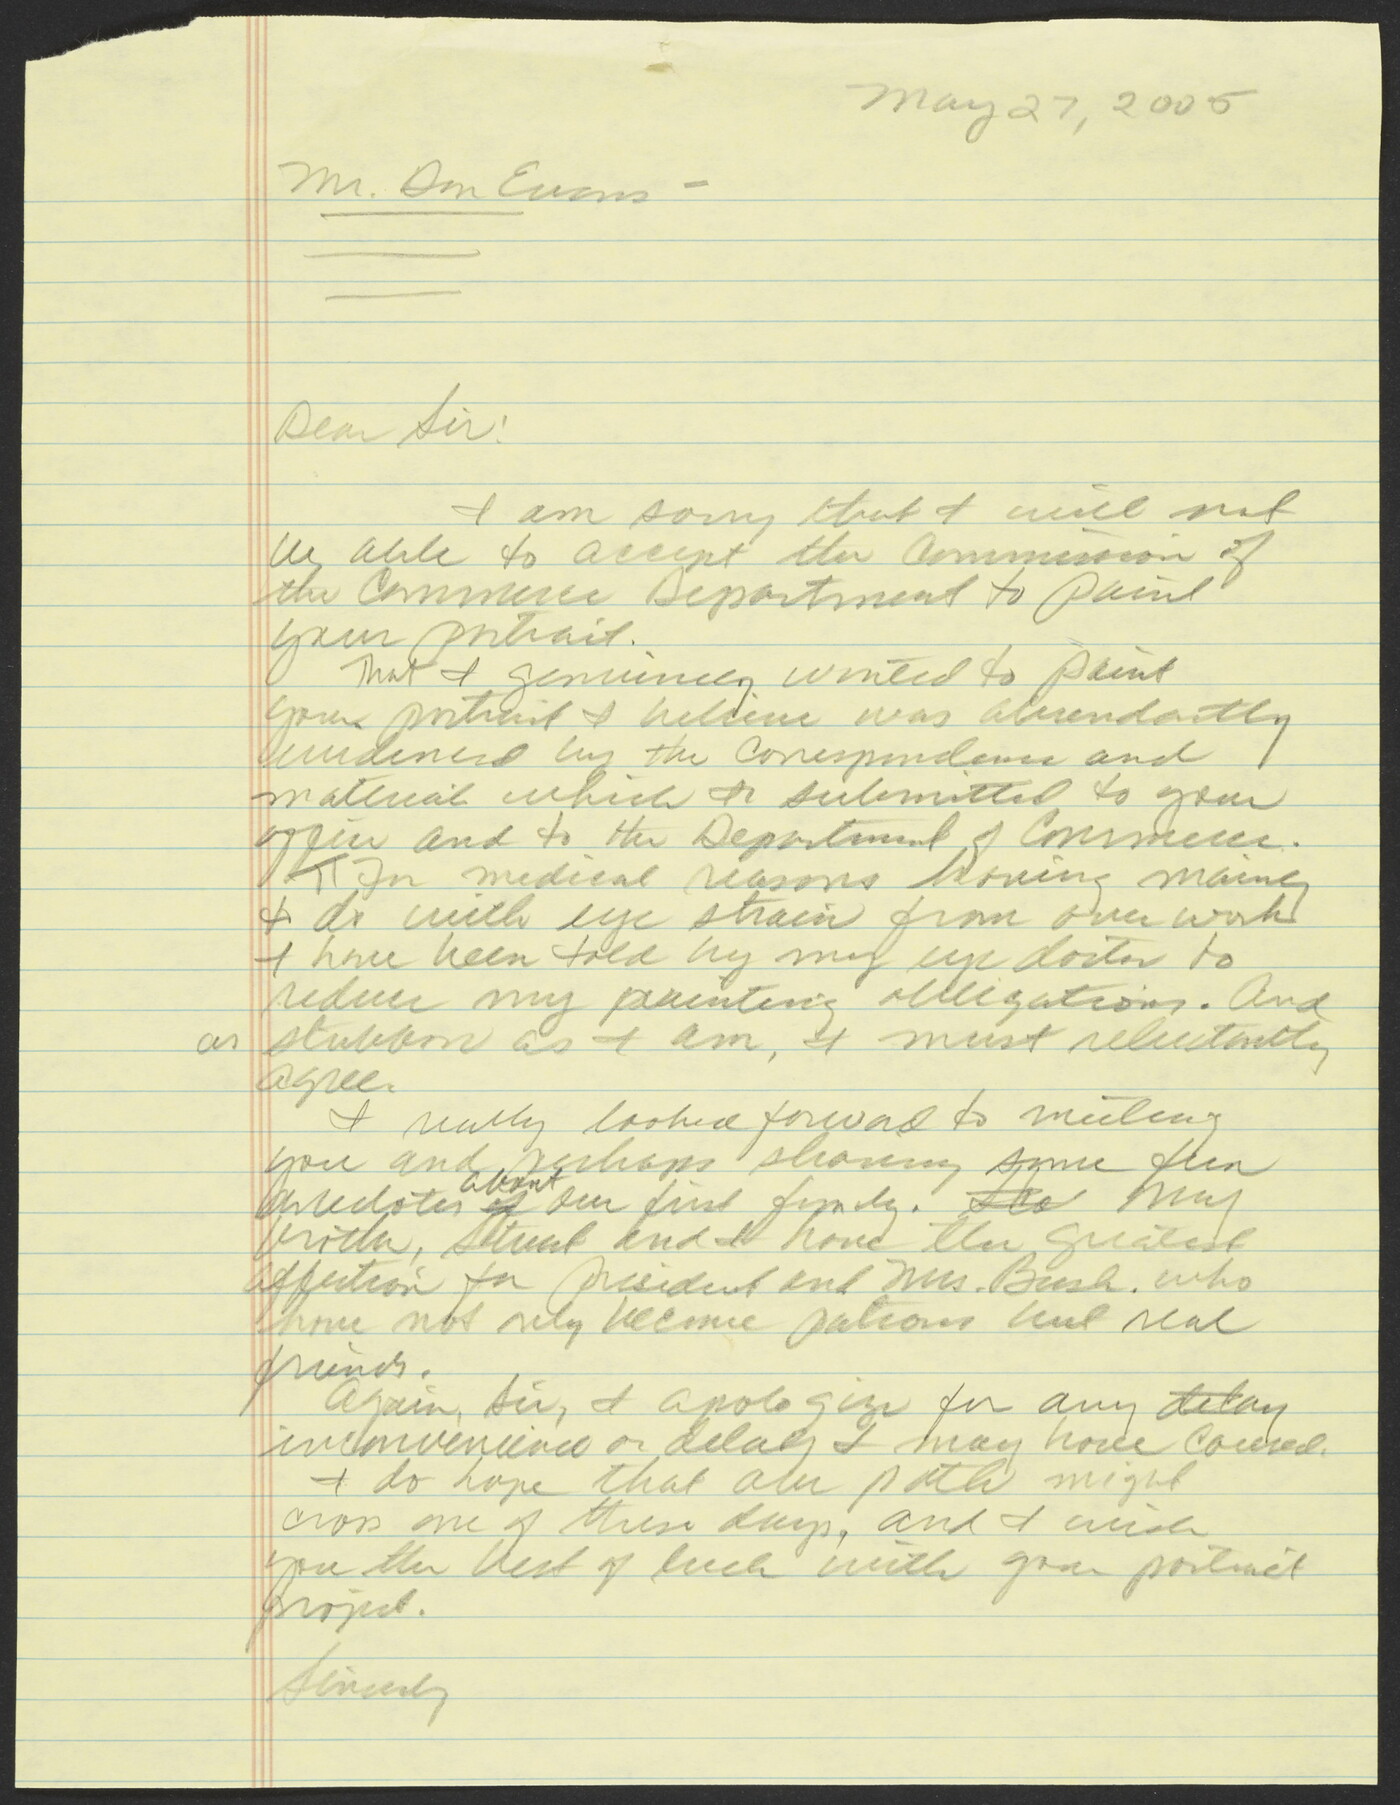 May 27, 2005
Mr. Don Evans -
Dear Sir:
I am sorry that I will not
be able to accept the Commission of
the Commerce Department to paint
your portrait.
That I genuinely wanted to paint
your portrait I believe was abundantly
evidenced by the correspondence and
material which I submitted to your
office and to the Department of Commerce.
For medical reasons having mainly
to do with eye strain from over work
I have been told by my eye doctor to
reduce my painting obligations. And
as stubborn as I am, I must reluctantly
agree.
I really looked forward to meeting
you and perhaps sharing some fun
anecdotes of about our first family. My
brother, Stuart and I have the greatest
affection for president and Mrs. Bush. who
have not only become patrons but real
friends.
Again, Sir, I apologize for any delay
inconvenience or delay I may have caused.
I do hope that our path might
cross one of these days, and I wish
you the best of luck with your portrait
project.
Sincerely